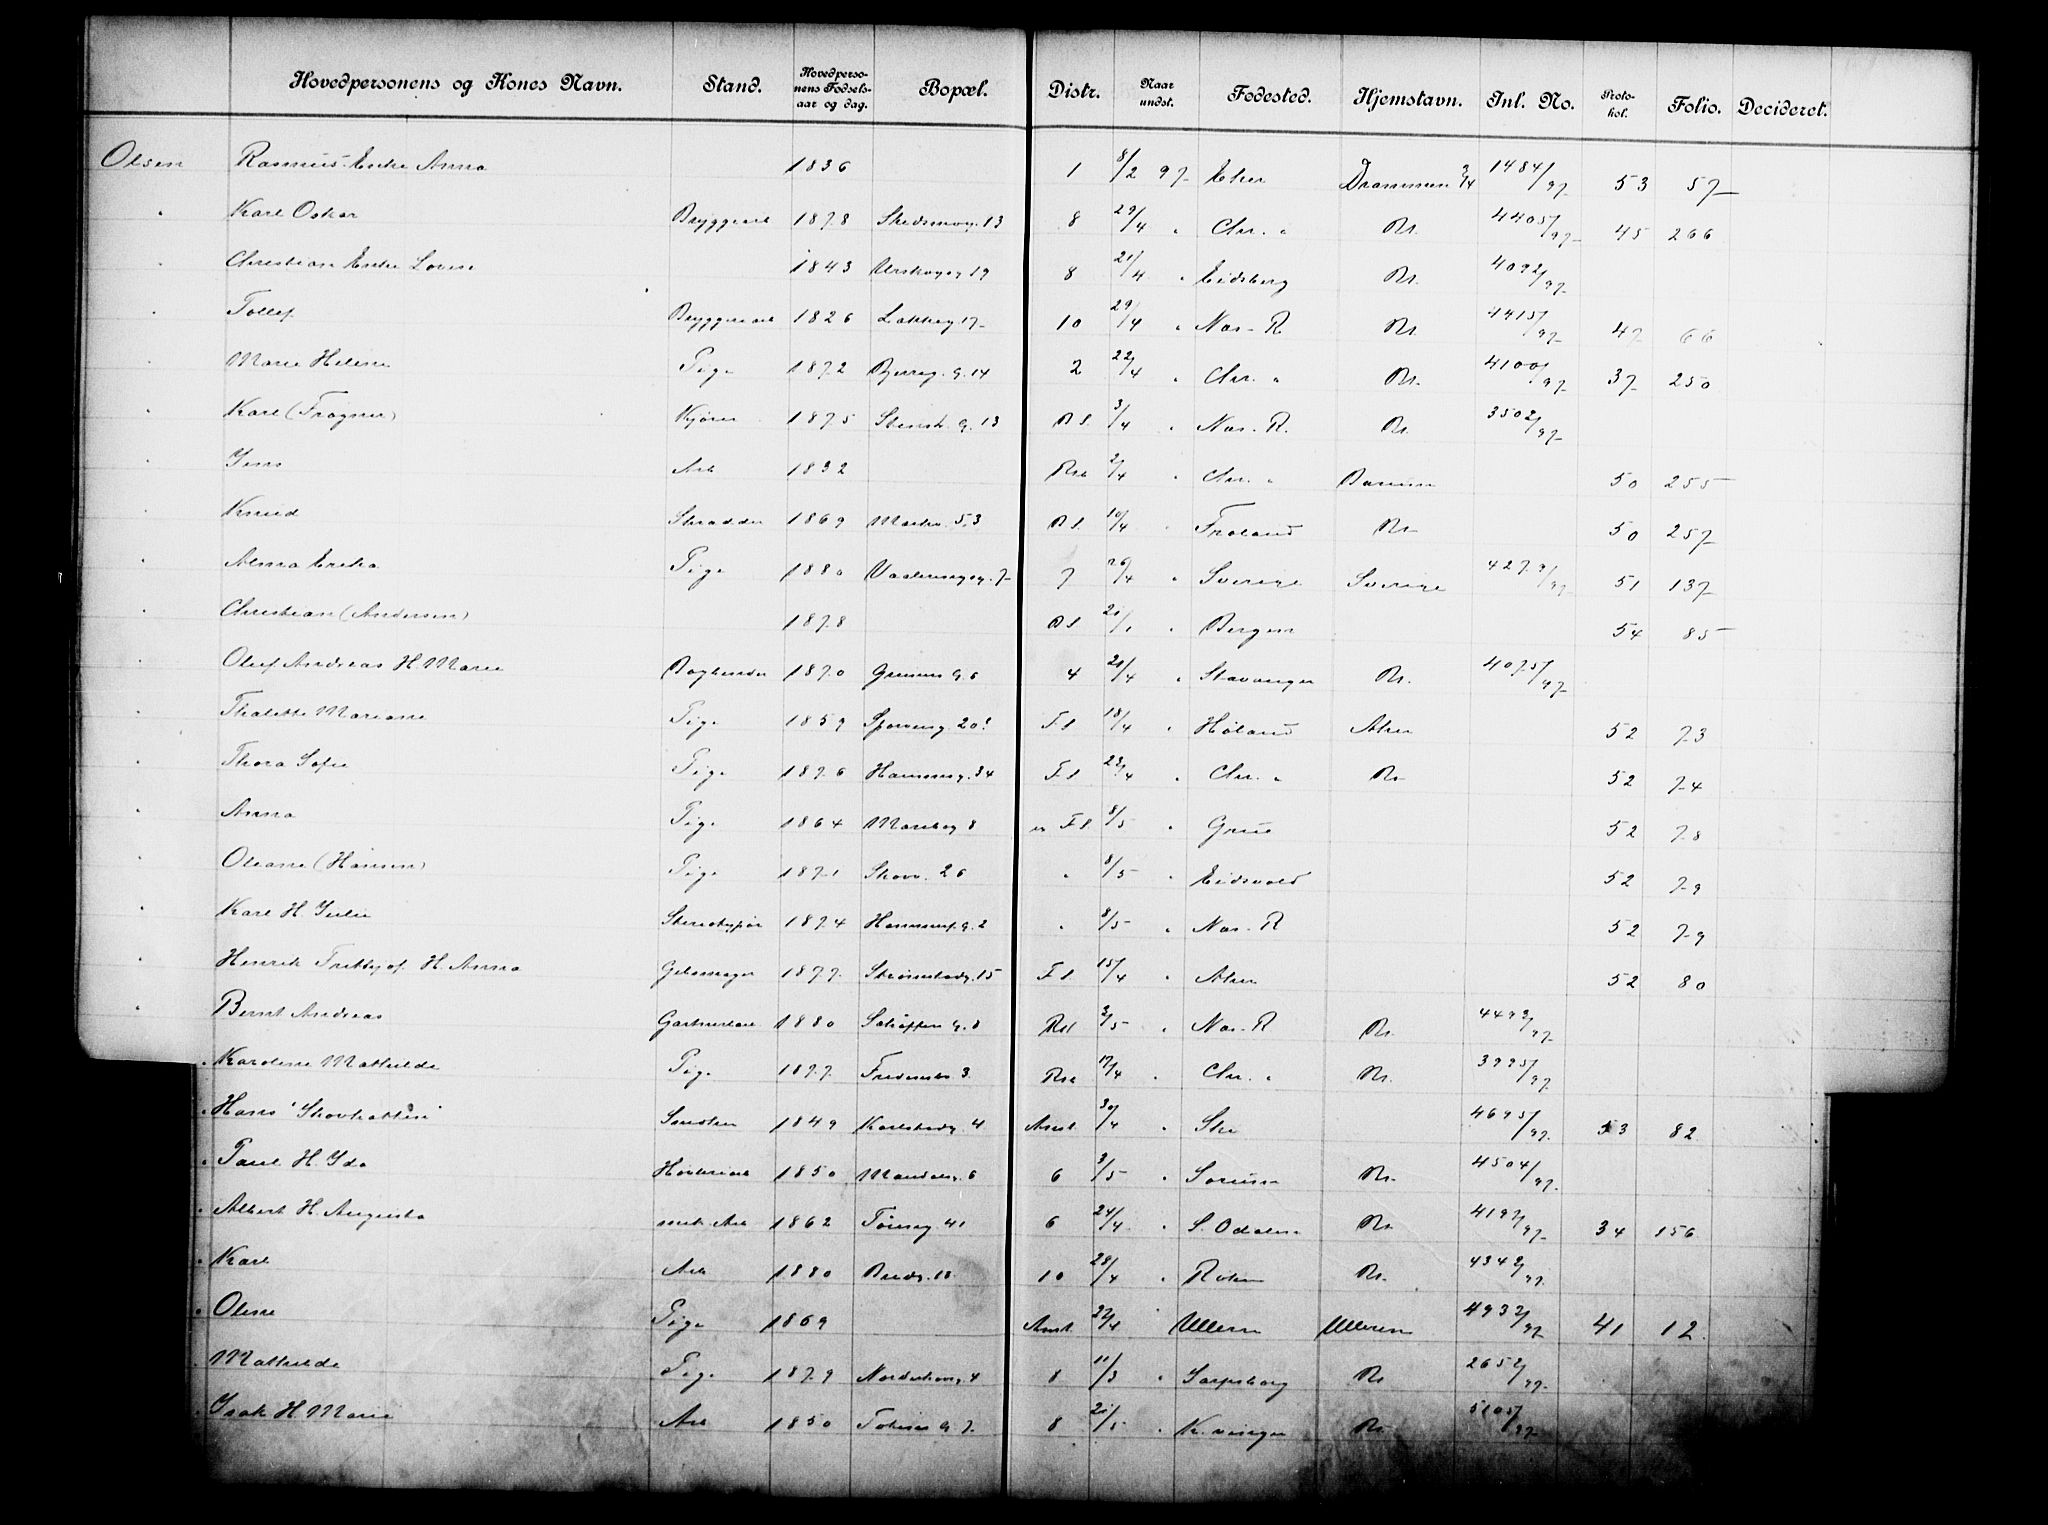 Hovedpersonens og Kones Navn. Stand. Hovedperso-nens Fødsels-aar og dag. Bopæl. Distr. Naar undst. Fødested. Hjemstavn. Inl. No. Proto-kol. Folio. Decideret.
Olsen Rasmus Enke Anna 1836 1 8/2 97 Eker Drammen 1484/97 53 57
" Karl Oskar Bryggearb 1878 Skedsmog. 13 8 29/4 " Chr. " Kr. 4405/97 45 266
" Christian Enke Lovise 1843 Urskogsg 19 8 21/4 " Eidsberg Kr. 4092/97
" Tollef Bryggeriarb 1826 Lakkeg 17 10 29/4 " Næs-R Kr. 4415/97 47 66
" Marie Helene Pige 1872 Bjerreg. G. 14 2 22/4 " Chr. " Kr. 4100/97 37 250
" Karl (Frogner) Kjører 1875 Stensb. G. 13 3/4 " Næs-R. Kr. 3502/97
" Jens Arb 1832 2/4 " Chr. " Bærum 50 255
" Knud Skrædder 1869 Markv. 53 10/4 " Froland Kr 50 257
" Alma Erika Pige 1880 Vaalerengsg. 7 7 26/4 " Sverige Sverige 4279/97 51 137
" Christian (Andersen) 1878 " Bergen 54 85
" Oluf Andreas H. Marie Bogbinder 1870 Gruners G. 6 4 21/4 " Stavanger Kr. 4075/97
" Thalette Mariane Pige 1859 Sporveisg 20 F.f. 18/4 " Høland Aker 52 73
" Thora Sofie Pige 1876 Hammersg. 34 F.f. 23/4 " Chr. " Kr 52 74
" Anna Pige 1864 Maribog 8 F.f. 8/5 " Grue 52 78
" Oleane (Hansen) Pige 1871 Skovv. 26 " 8/5 " Eidsvold 52 79
" Karl H. Julie Stereotypør 1874 Hammersb. G. 2 " 8/5 " Næs-R 52 79
" Henrik Frithjof H. Anna Gjelsmager 1877 Strømsbodg. 15 F.f. 15/4 " Aker 52 80
" Bernt Andreas Gartnerlær 1880 Schöffers G. 8 3/5 " Næs-R Kr. 4492/97
" Karoline Mathilde Pige 1877 Fredensb. 3 17/4 " Chr. " Kr. 3995/97
" Hans "Skovkatten" Smeden 1849 Karlsbodg. 4 Anst. 30/4 " Ski 4695/97 53 82
" Paul H. Ida 1850 Mandalsg. 6 6 3/5 " Sørum Kr. 4504/97
" Albert H. Augusta mek. Arb 1862 Tøieng 41 6 24/4 " S. Odalen Kr 4197/97 34 156
" Karl Arb 1880 Bredg. 18 10 28/4 " Røken Kr. 4342/97
" Oline Pige 1869 Anst. 27/4 " Ullern Ulleren 4932/97 41 12
" Mathilde Pige 1879 8 11/3 " Sarpsborg Kr 2652/97
" Isak H. Marie Arb 1850 Tøiens G. 7 8 21/5 " K. vinger Kr. 5105/97